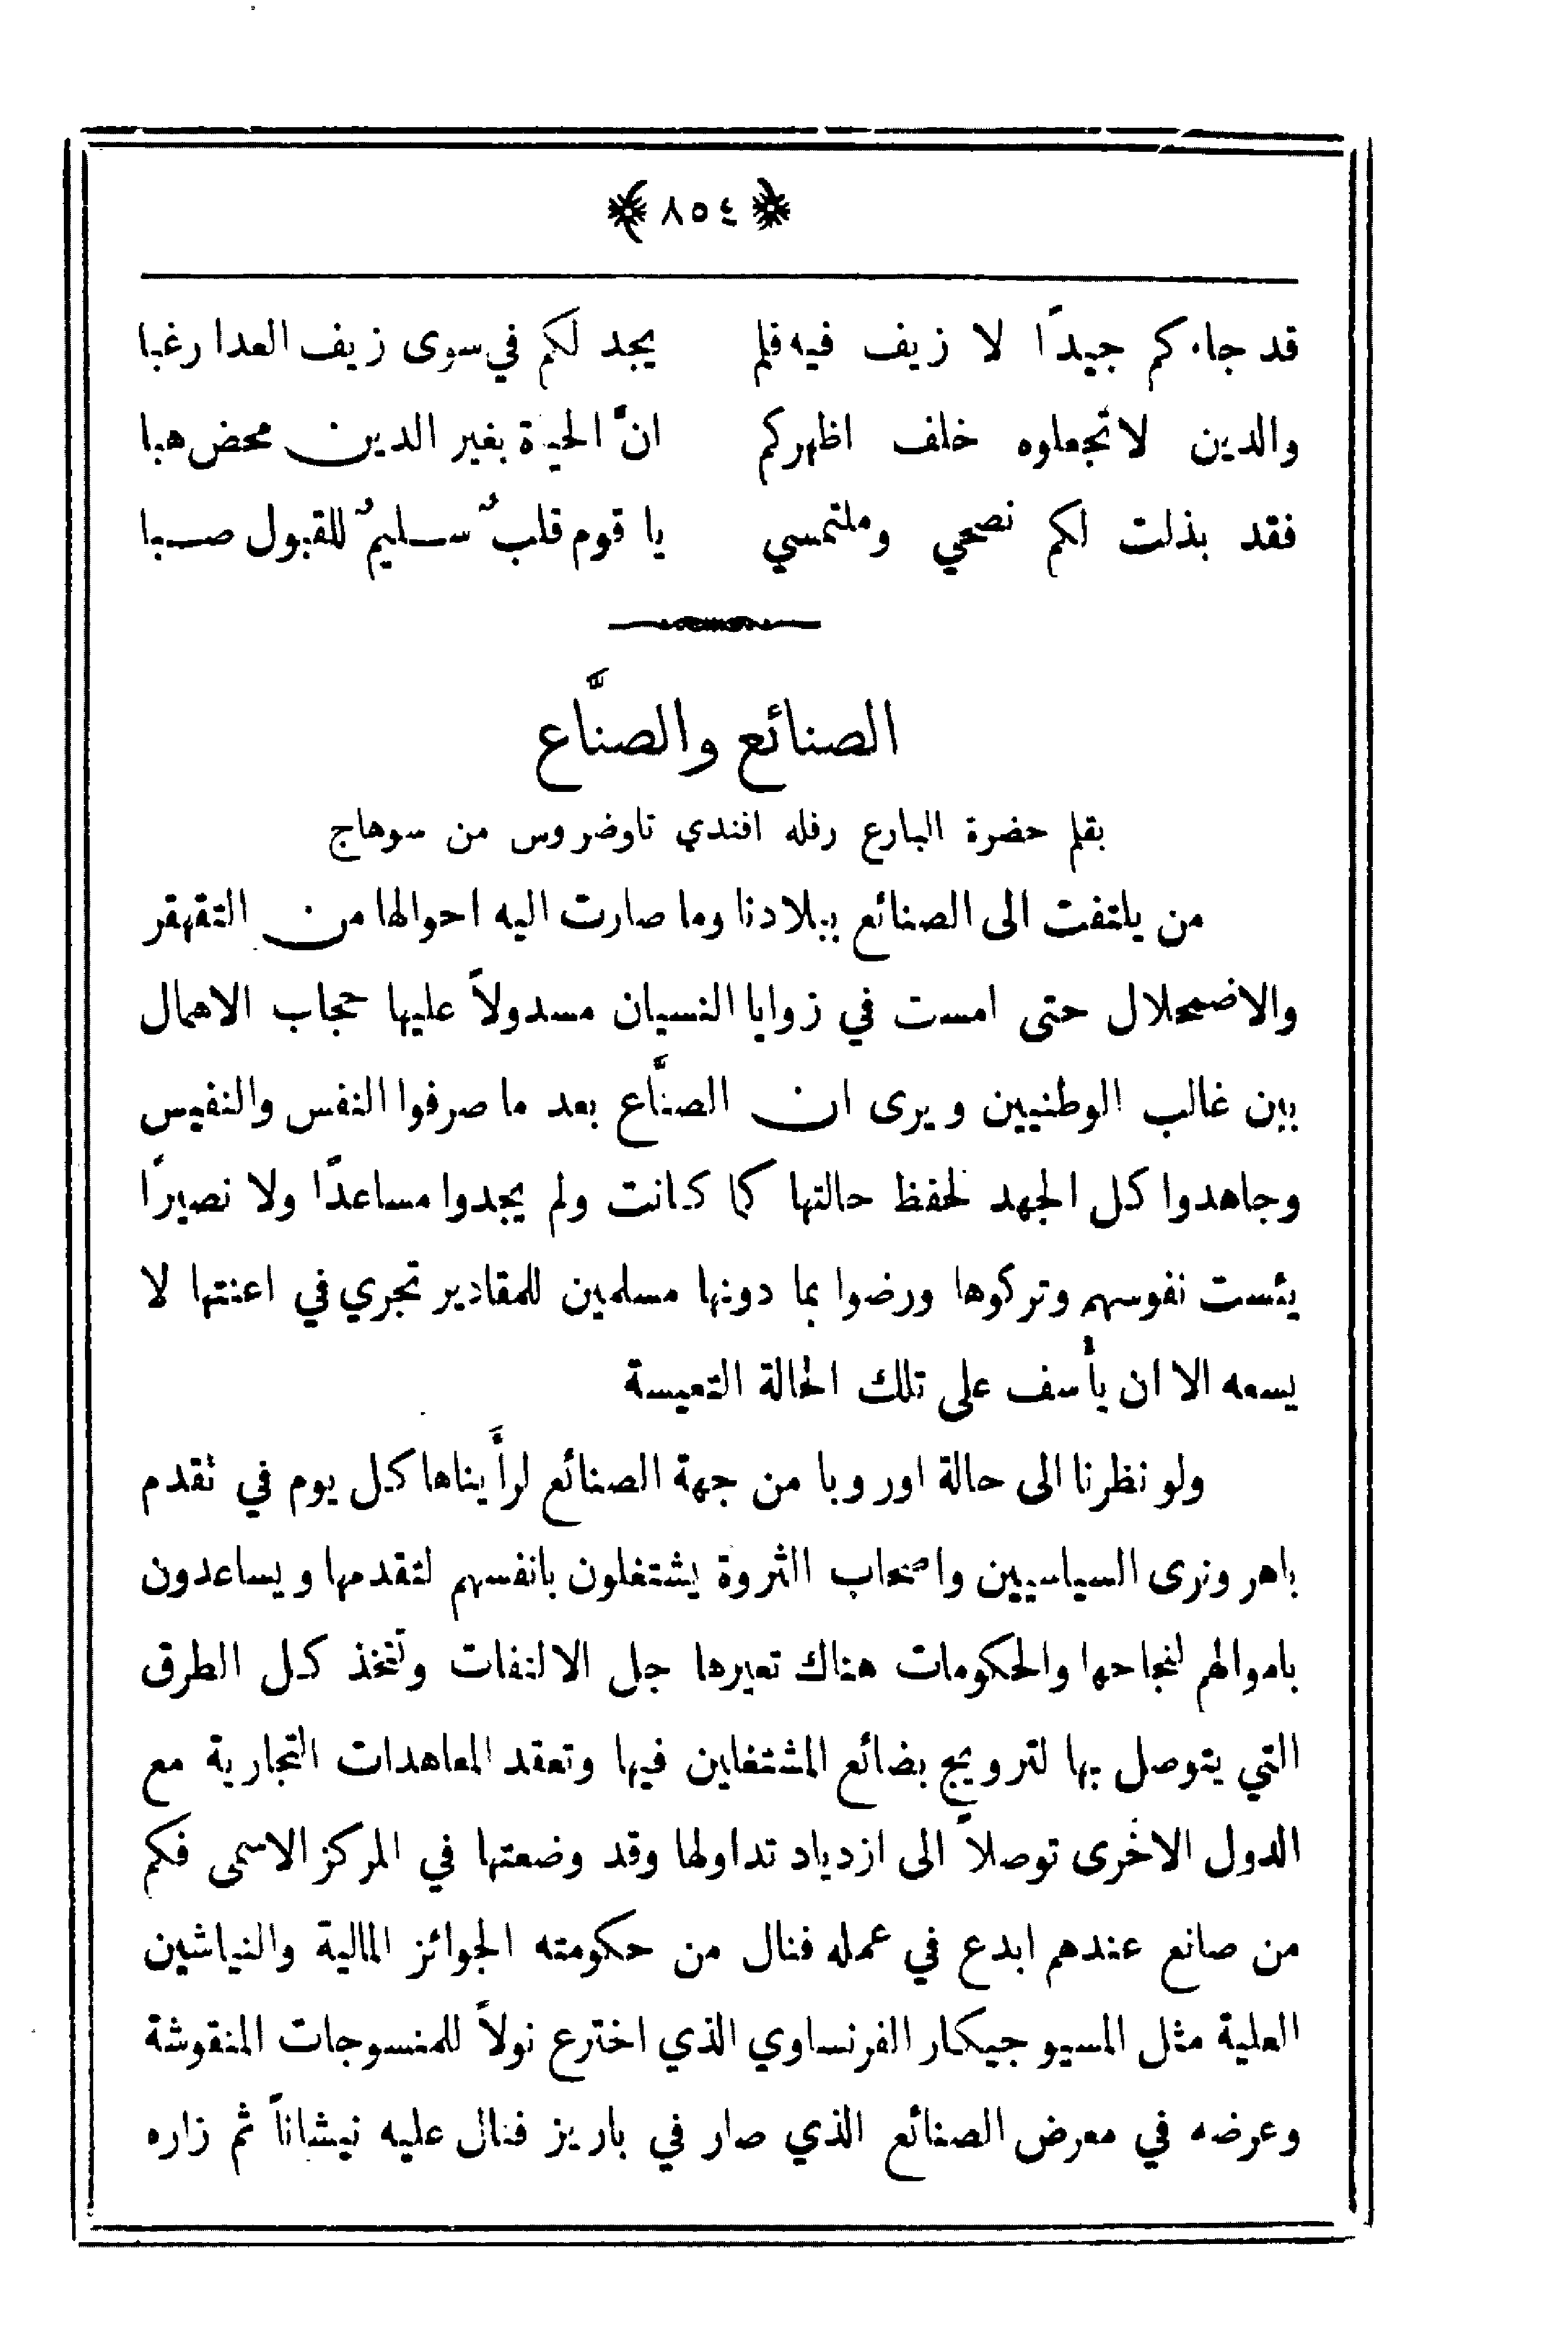 ٨٥٤
قد جاءكم جيداً لا زيف فيه فلم يجد لكم في سوى زيف العدا رغبا
والدين لا تجعلوه خلف اظهركم انَّ الحياة بغير الدين محض هبا
فقد بذلت لكم نصحي وملتمسي يا قوم قلبٌ سليمٌ للقبول صبا
الصنائع والصنَّاع
بقلم حضرة البارع رفله افندي تاوضروس من سوهاج
من يلتفت الى الصنائع ببلادنا وما صارت اليه احوالها من التقهقر
والاضمحلال حتى امست في زوايا النسيان مسدولاً عليها حجاب الاهمال
بين غالب الوطنيين ويرى ان الصنَّاع بعد ما صرفوا النفس والنفيس
وجاهدوا كل الجهد لحفظ حالتها كما كانت ولم يجدوا مساعداً ولا نصيراً
يئست نفوسهم وتركوها ورضوا بما دونها مسلمين للمقادير تجري في اعنتها لا
يسعه الا ان يأسف على تلك الحالة التعيسة
ولو نظرنا الى حالة اوروبا من جهة الصنائع لرأيناها كل يوم في تقدم
باهر ونرى السياسيين واصحاب الثروة يشتغلون بانفسهم لتقدمها ويساعدون
باموالهم لنجاحها والحكومات هناك تعيرها جل الالتفات وتتخذ كل الطرق
التي يتوصل بها لترويج بضائع المشتغلين فيها وتعقد المعاهدات التجارية مع
الدول الاخرى توصلاً الى ازدياد تداولها وقد وضعتها في المركز الاسمى فكم
من صانع عندهم ابدع في عمله فنال من حكومته الجوائز المالية والنياشين
العلية مثل المسيو جيكار الفرنساوي الذي اخترع نولاً للمنسوجات المنقوشة
وعرضه في معرض الصنائع الذي صار في باريز فنال عليه نيشاناً ثم زاره